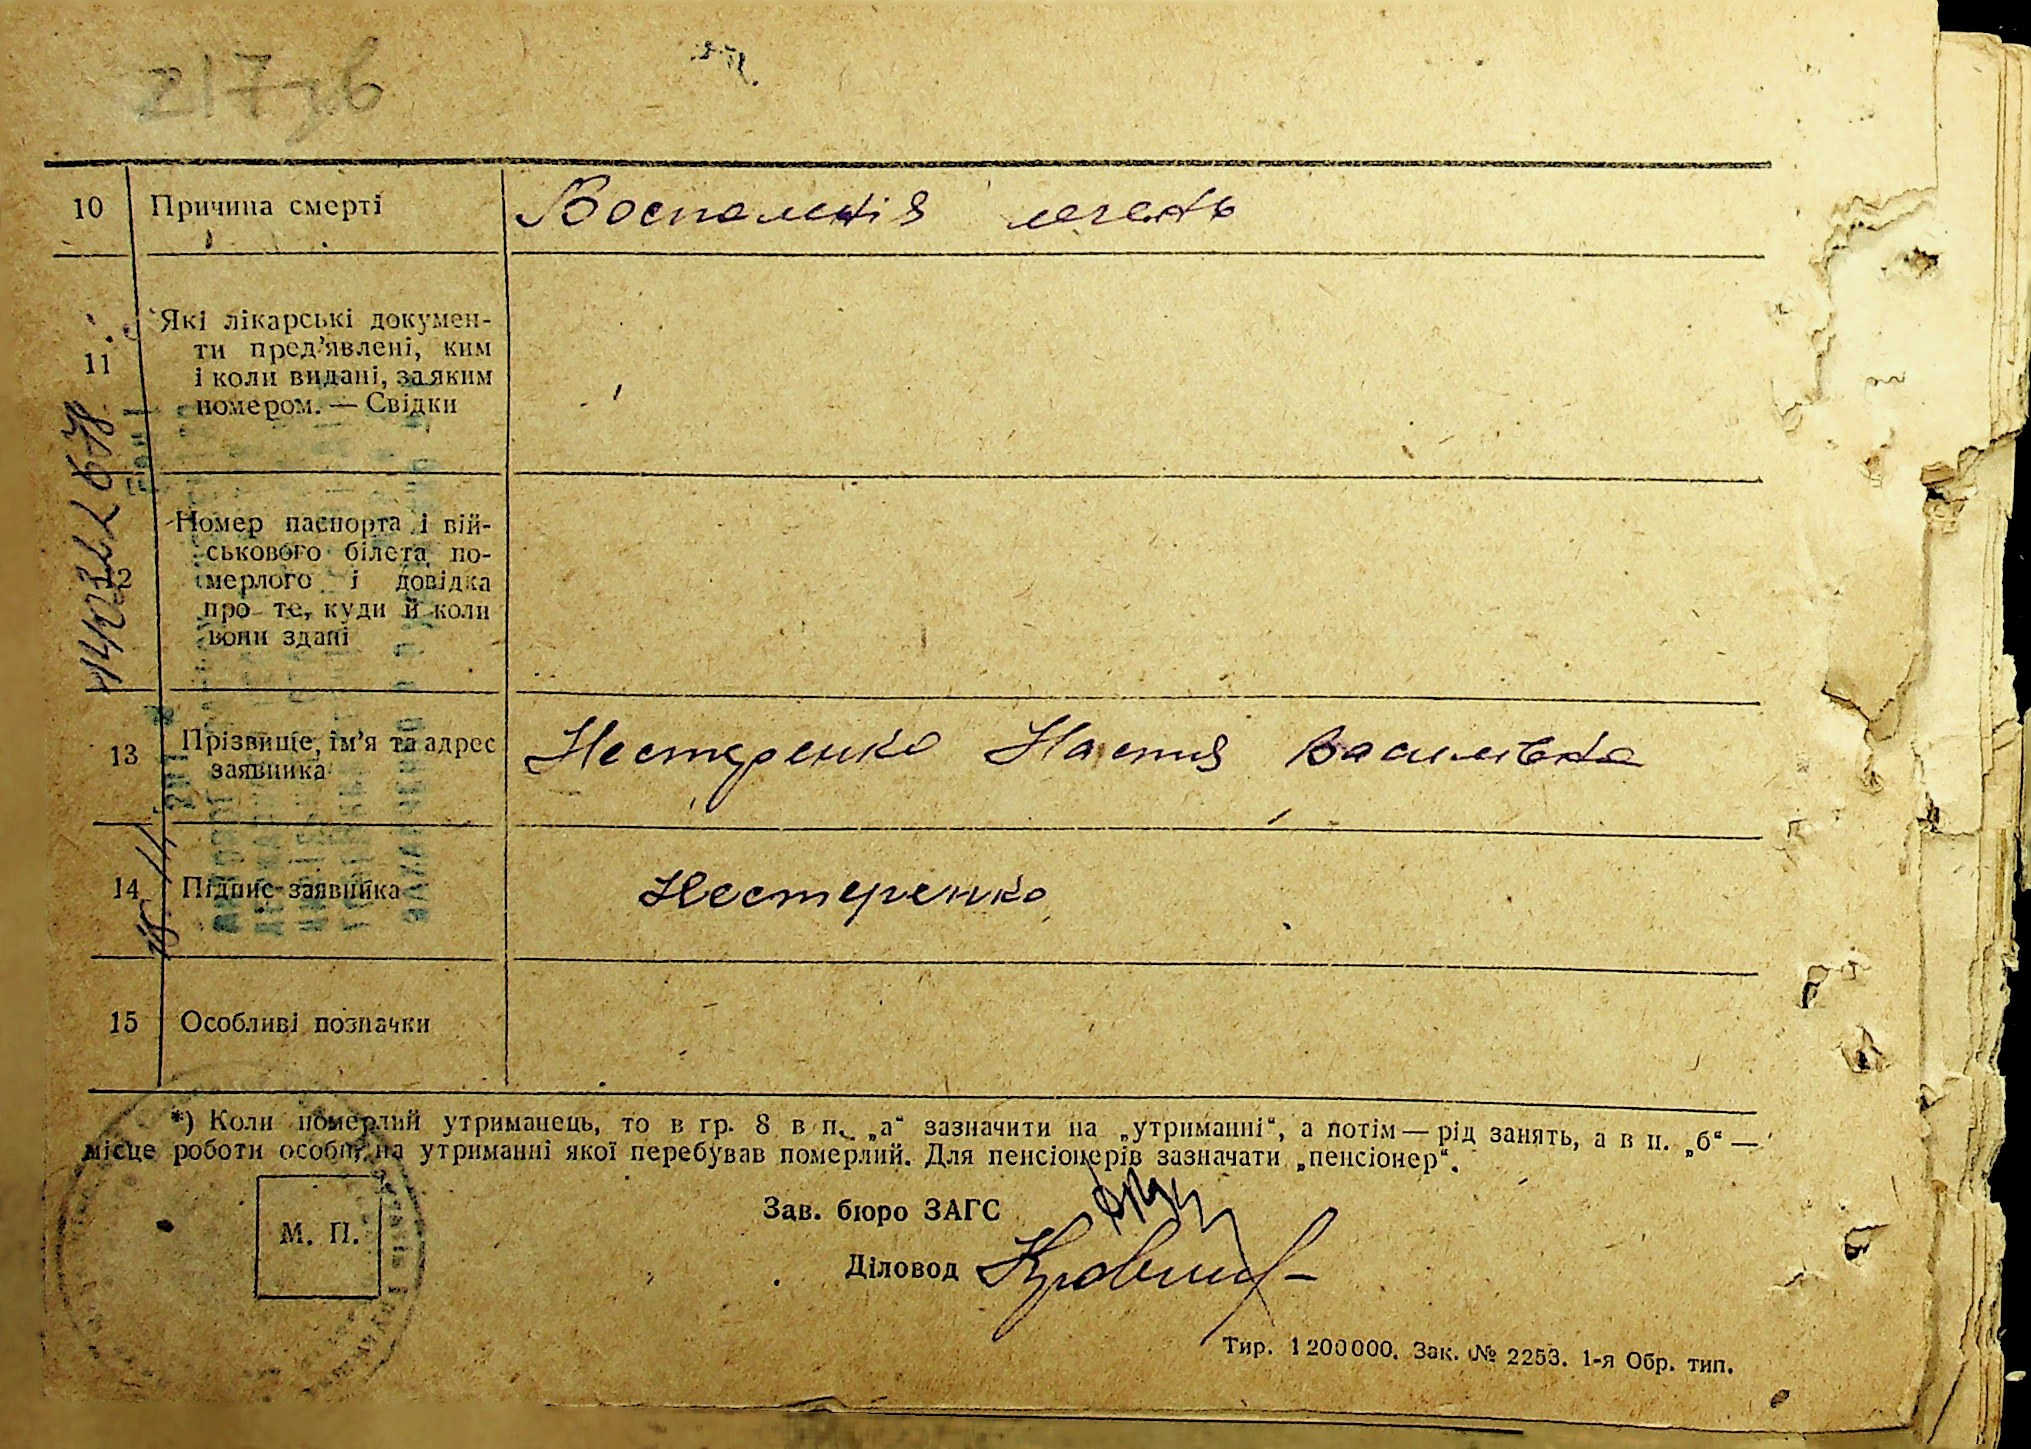 217зв
10 Причина смерті Воспаленія легень
11 Які лікарські докумен-
ти пред’явлені, ким
і коли видані, за яким
номером. — Свідки
12 Номер паспорта і вій-
ськового білета по-
мерлого і довідка
про те, куди й коли
вони здані
13 Прізвище, ім’я та адрес
заявника Нестеренко Настя Василівна
14 Підпис заявника Нестеренко
15 Особливі позначки
*) Коли померлий утриманець, то в гр. 8 в п. „а“ зазначити на „утриманні“, а потім — рід занять, а в п. „б“ —
місце роботи особи, на утриманні якої перебував померлий. Для пенсіонерів зазначати „пенсіонер“.
Зав. бюро ЗАГС
М. П.
Діловод
Тир. 1 200 000. Зак. № 2253. 1-я Обр. тип.